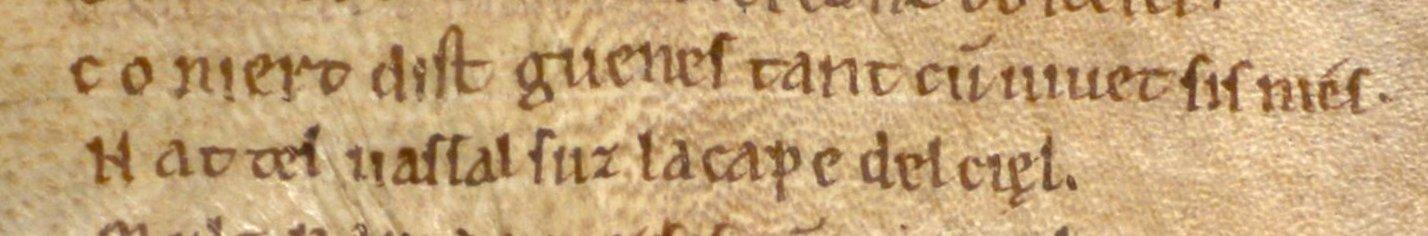 Co niert dist guenes tant cū uiuet sis niés.
N at tel uassal suz la cape del ciel.